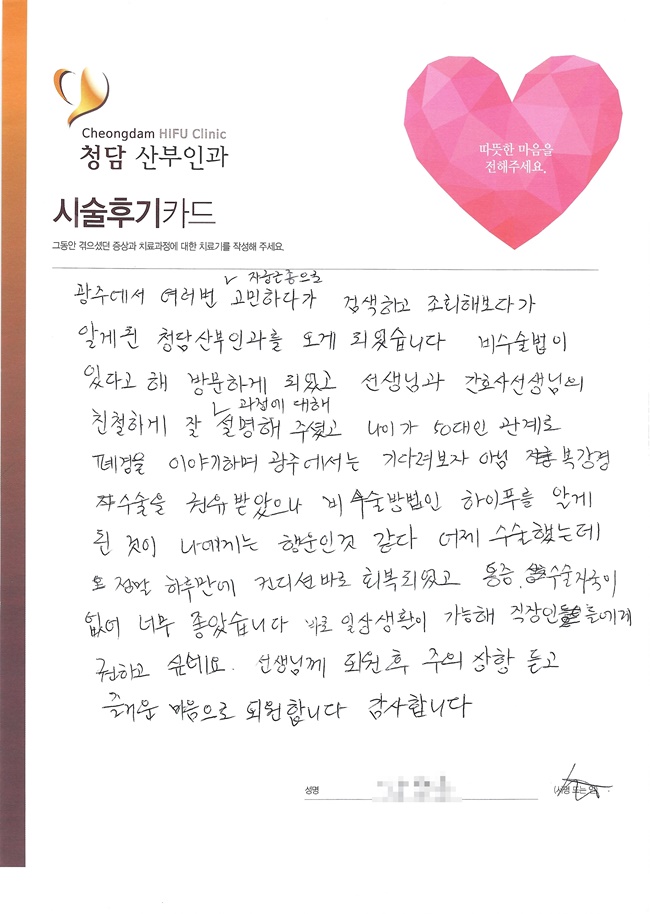 Cheongdam HIFU Clinic
청담 산부인과
따뜻한 마음을
전해주세요.
시술후기카드
그동안 겪으셨던 증상과 치료과정에 대한 치료기를 작성해 주세요.
자궁근종으로
광주에서 여러번 고민하다가 검색하고 조회해보다가
알게된 청담산부인과를 오게 되었습니다 비수술법이
있다고 해 방문하게 되었고 선생님과 간호사선생님의
과정에 대해
친철하게 잘 설명해 주셨고 나이가 50대인 관계로
폐경을 이야기하며 광주에서는 기다려보자 아님 복강경
수술을 권유 받았으나 비수술방법인 하이푸를 알게
된 것이 나에게는 행운인것 같다 어제 수술했는데
정말 하루만에 컨디션바로 회복되었고 통증, 수술자국이
없어 너무 좋았습니다 바로 일상생활이 가능해 직장인들에게
권하고 싶네요. 선생님께 퇴원후 주의 상황 듣고
즐거운 마음으로 퇴원합니다 감사합니다
성명